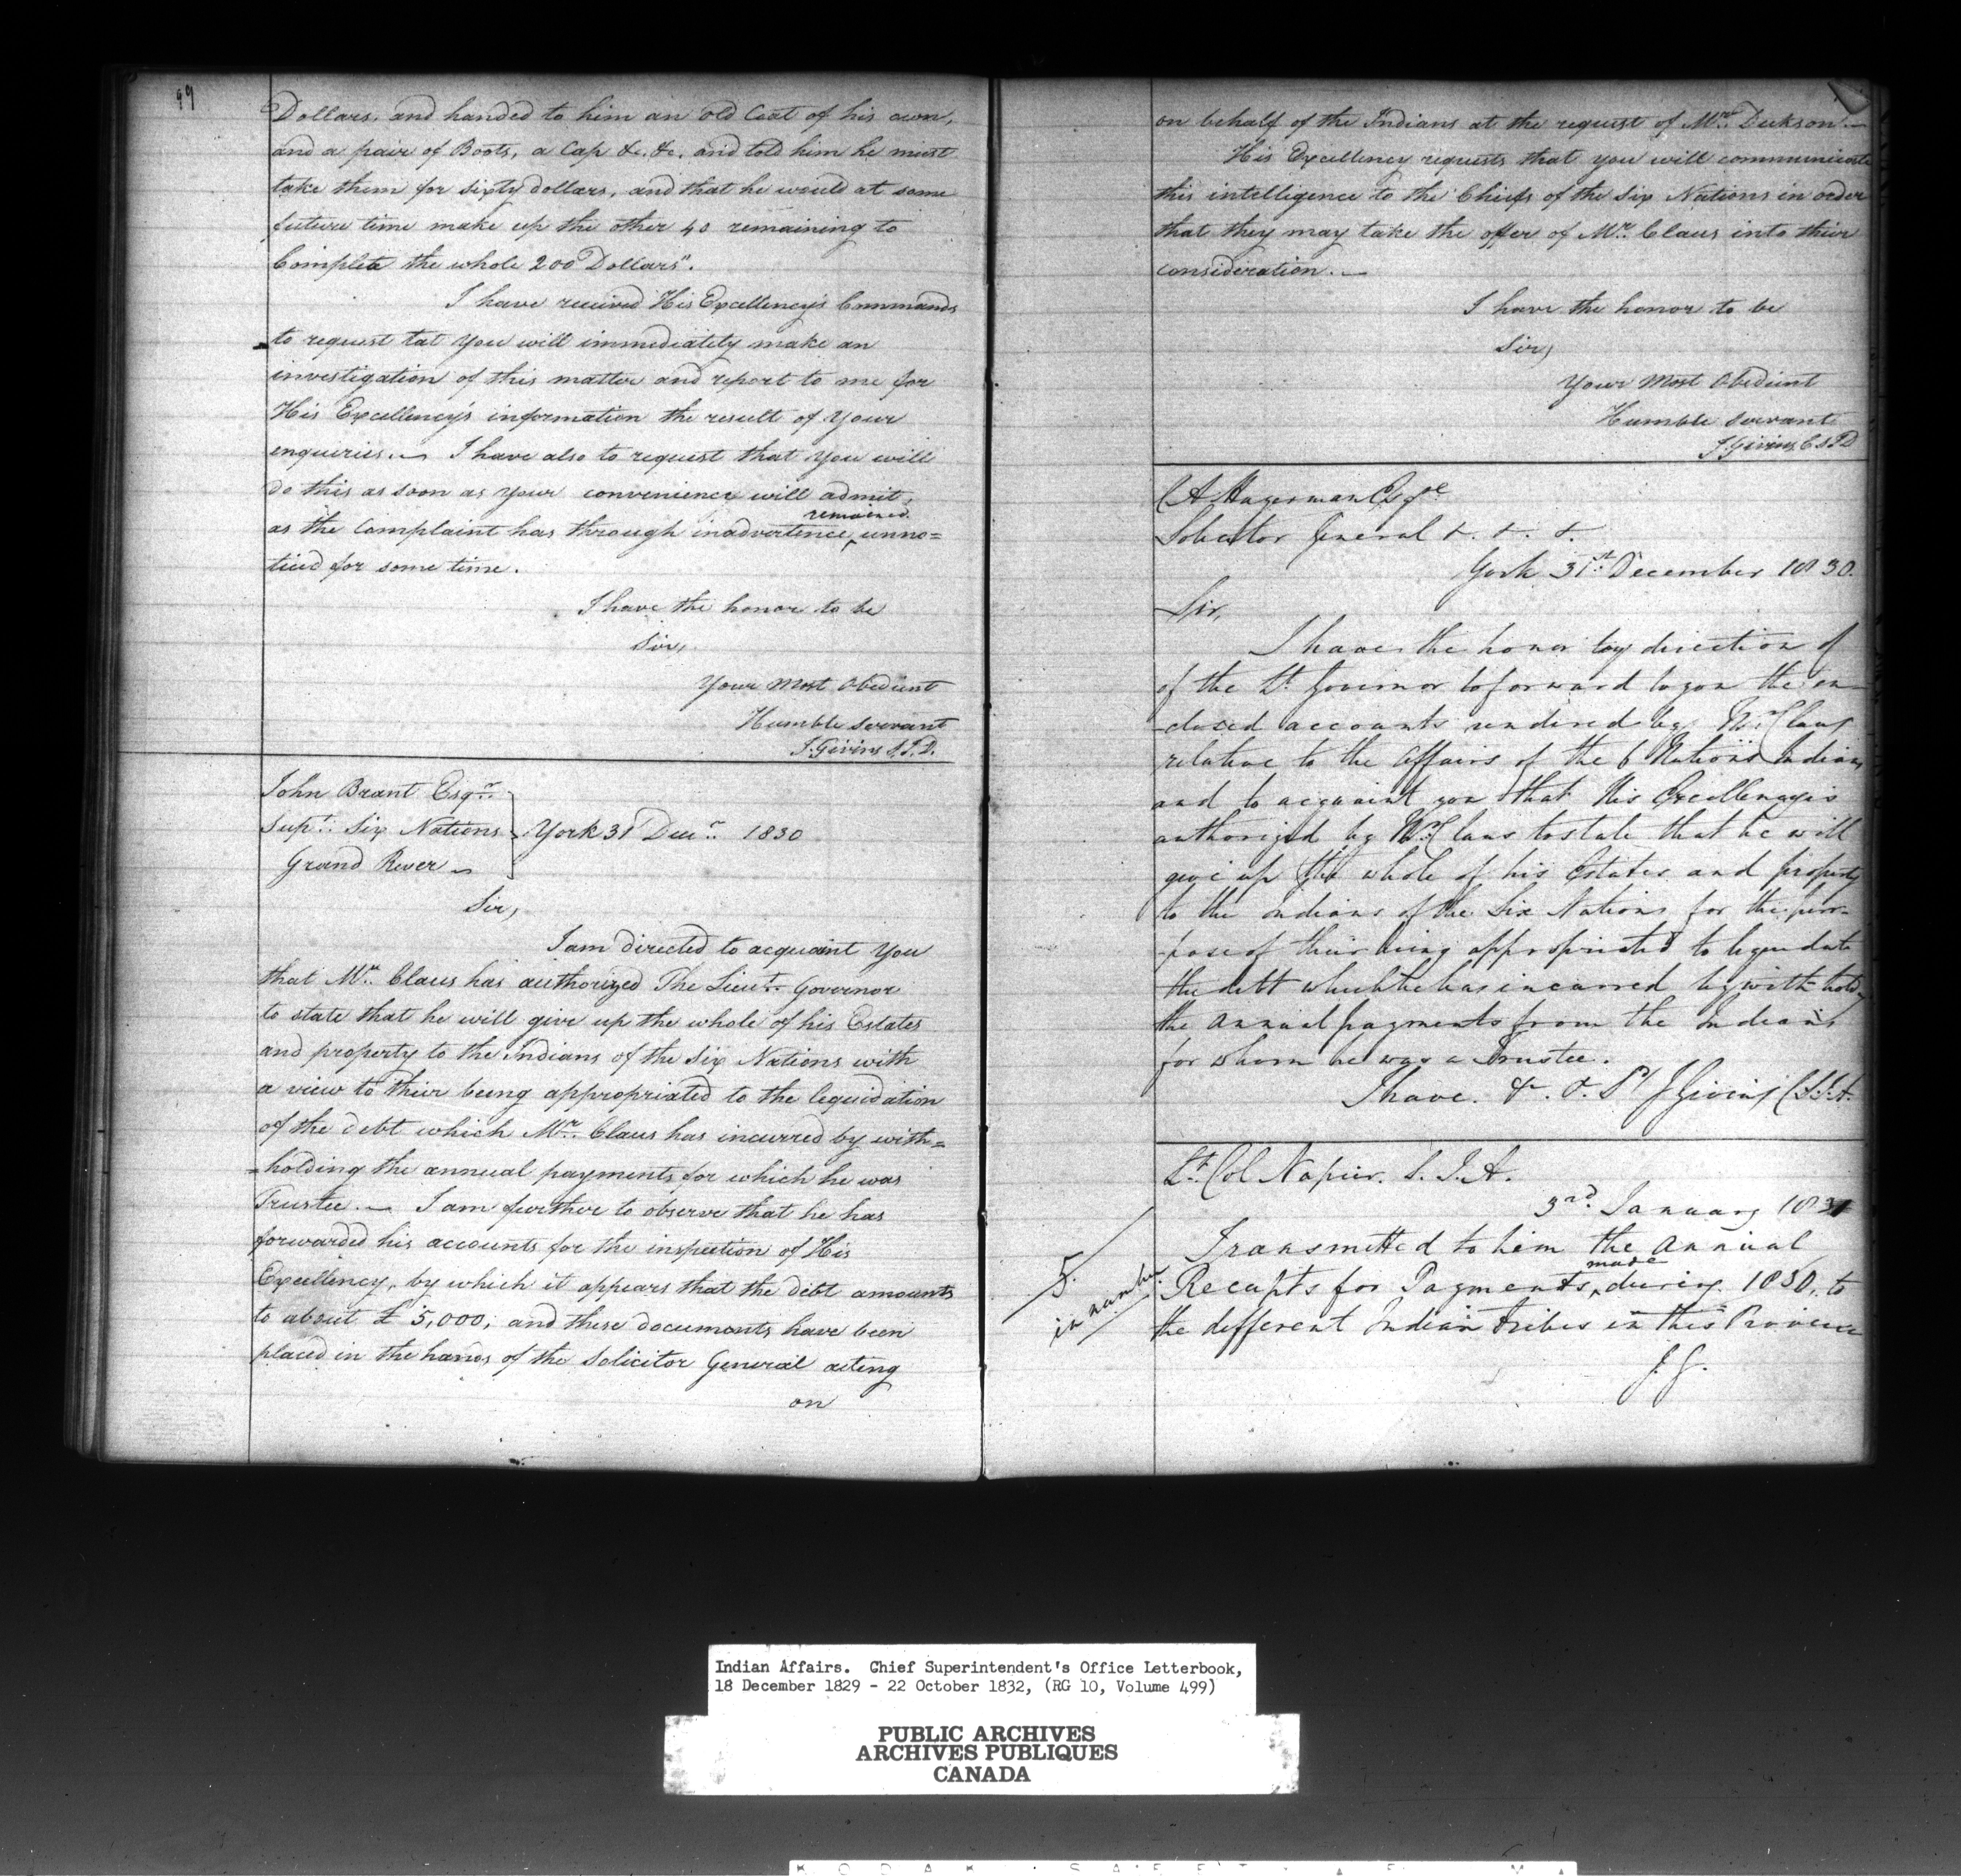 99
Dollars, and handed to him an old Coat of his own,
and a pair of Boots, a Cap &c. &c. and told him he must
take them for sixty dollars, and that he would at some
future time make up the other 40 remaining to
Complete the whole 200 Dollars".
I have received His Excellency's Commands
to request tat you will immediately make an
investigation of this matter and report to me for
His Excellency's information the result of your
enquiries.— I have also to request that you will
do this as soon as your convenience will admit,
as the Complaint has through inadvertence, remained unno=
ticed for some time.
I have the honor to be
Sir,
Your Most Obedient
Humble Servant
J. Givins S.I.D.
John Brant Esqr.
Supt. Six Nations
Grand River
York 31 Decr. 1830
Sir,
I am directed to acquaint You
that Mr. Claus has authorized The Lieut. Governor
to state that he will give up the whole of his Estates
and property to the Indians of the Six Nations with
a view to their being appropriated to the liquidation
of the debt which Mr. Claus has incurred by with=
=holding the annual payments for which he was
Trustee.— I am further to observe that he has
forwarded his accounts for the inspection of His
Excellency, by which it appears that the debt amounts
to about £5,000, and these documents have been
placed in the hands of the Solicitor General acting
on
on behalf of the Indians at the request of Mr. Dickson.—
His Excellency requests that you will communicate
this intelligence to the Chiefs of the Six Nations in order
that they may take the offer of Mr. Claus into their
consideration.—
I have the honor to be
Sir,
Your Most Obedient
Humble Servant
J. Givins, C.S.I.D
C A Hagerman Esqre
Solicitor General &. &. &.
York 31st December 1830.
Sir,
I have the honor by direction of
of the Lt Governor to forward to you the en-
-closed accounts rendered by Mr Claus
relative to the affairs of the 6 Nations Indians
and to acquaint you that His Excellency is
authorized by Mr Claus to state that he will
give up the whole of his Estates and property
to the Indians of the Six Nations for the pur-
-pose of their being appropriated to liquidate
the debt which he has incurred by with-hold
the annual payments from the Indians
for whom he was a Trustee.
I have. &. &. Sd J Givins C.S.I.A.
Lt. Col Napier. S. I. A.
3rd. January 1831
Transmitted to him the annual
Receipts for Payments, made during 1830, to
the different Indian tribes in this Province
J. G.
5.
in number.
Indian Affairs. Chief Superintendent's Office Letterbook,
18 December 1829 - 22 October 1832, (RG 10, Volume 499)
PUBLIC ARCHIVES
ARCHIVES PUBLIQUES
CANADA